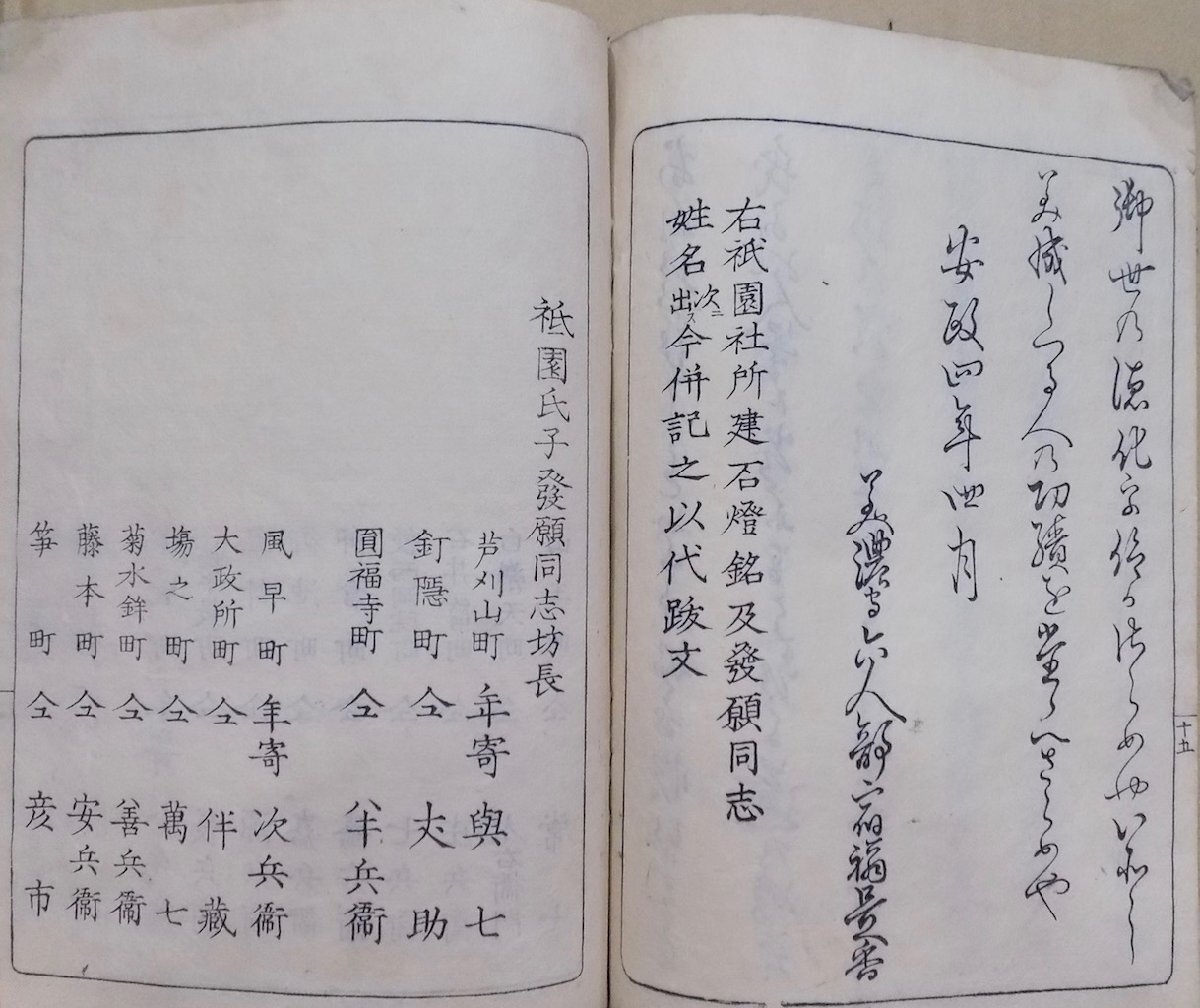 御世の徳化字
美成しつる人の功績を
安政四年四月
美濃守六人部宿禰是香
右祇園社所建石燈銘及發願同志
姓名次ニ出ス今併記之以代跋文
十五
祇園氏子發願同志坊長
芦刈山町 年寄 與七
釘隱町 仝 丈助
圓福寺町 仝 半兵衞
風早町 年寄 次兵衞
大政所町 仝 伴藏
塲之町 仝 萬七
菊水鉾町 仝 善兵衞
藤本町 仝 安兵衞
笋町 仝 彦市